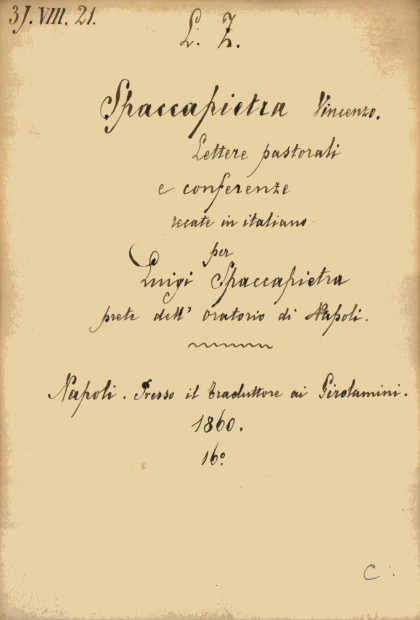 37. VIII. 21.
L. Z.
Spaccapietra Vincenzo.
Lettere pastorali
e conferenze
recate in italiano
per
Luigi Spaccapietra
prete dell' Oratorio di Napoli.
Napoli. Presso il traduttore ai Girolamini.
1860.
16º
C.